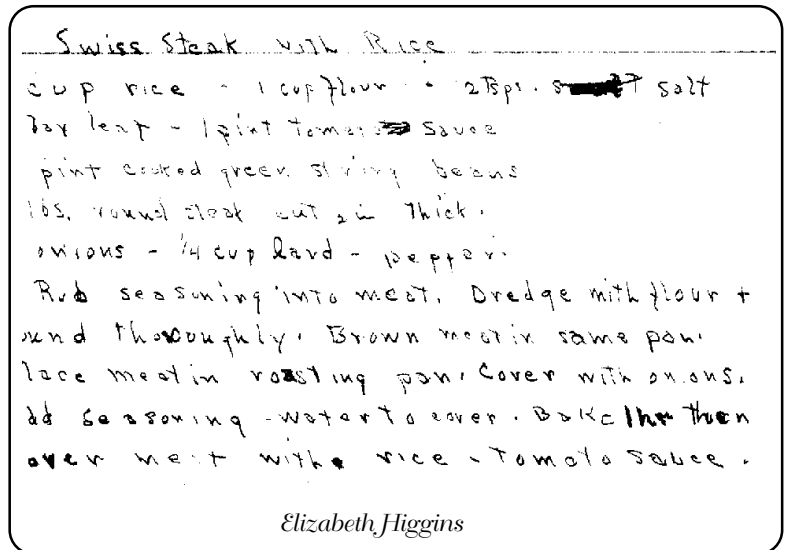 Swiss Steak with Rice
cup rice - 1 cup flour - 2 Tsps. salt
bay leaf - 1 pint tomato sauce
pint cooked green string beans
lbs. round steak cut 2 in thick.
onions - 1/4 cup lard - pepper.
Rub seasoning into meat. Dredge with flour +
ound thoroughly. Brown meat in same pan.
lace meat in roasting pan. Cover with onions.
dd seasoning - water to cover. Bake 1 hr then
over meat with rice - Tomato sauce.
Elizabeth Higgins